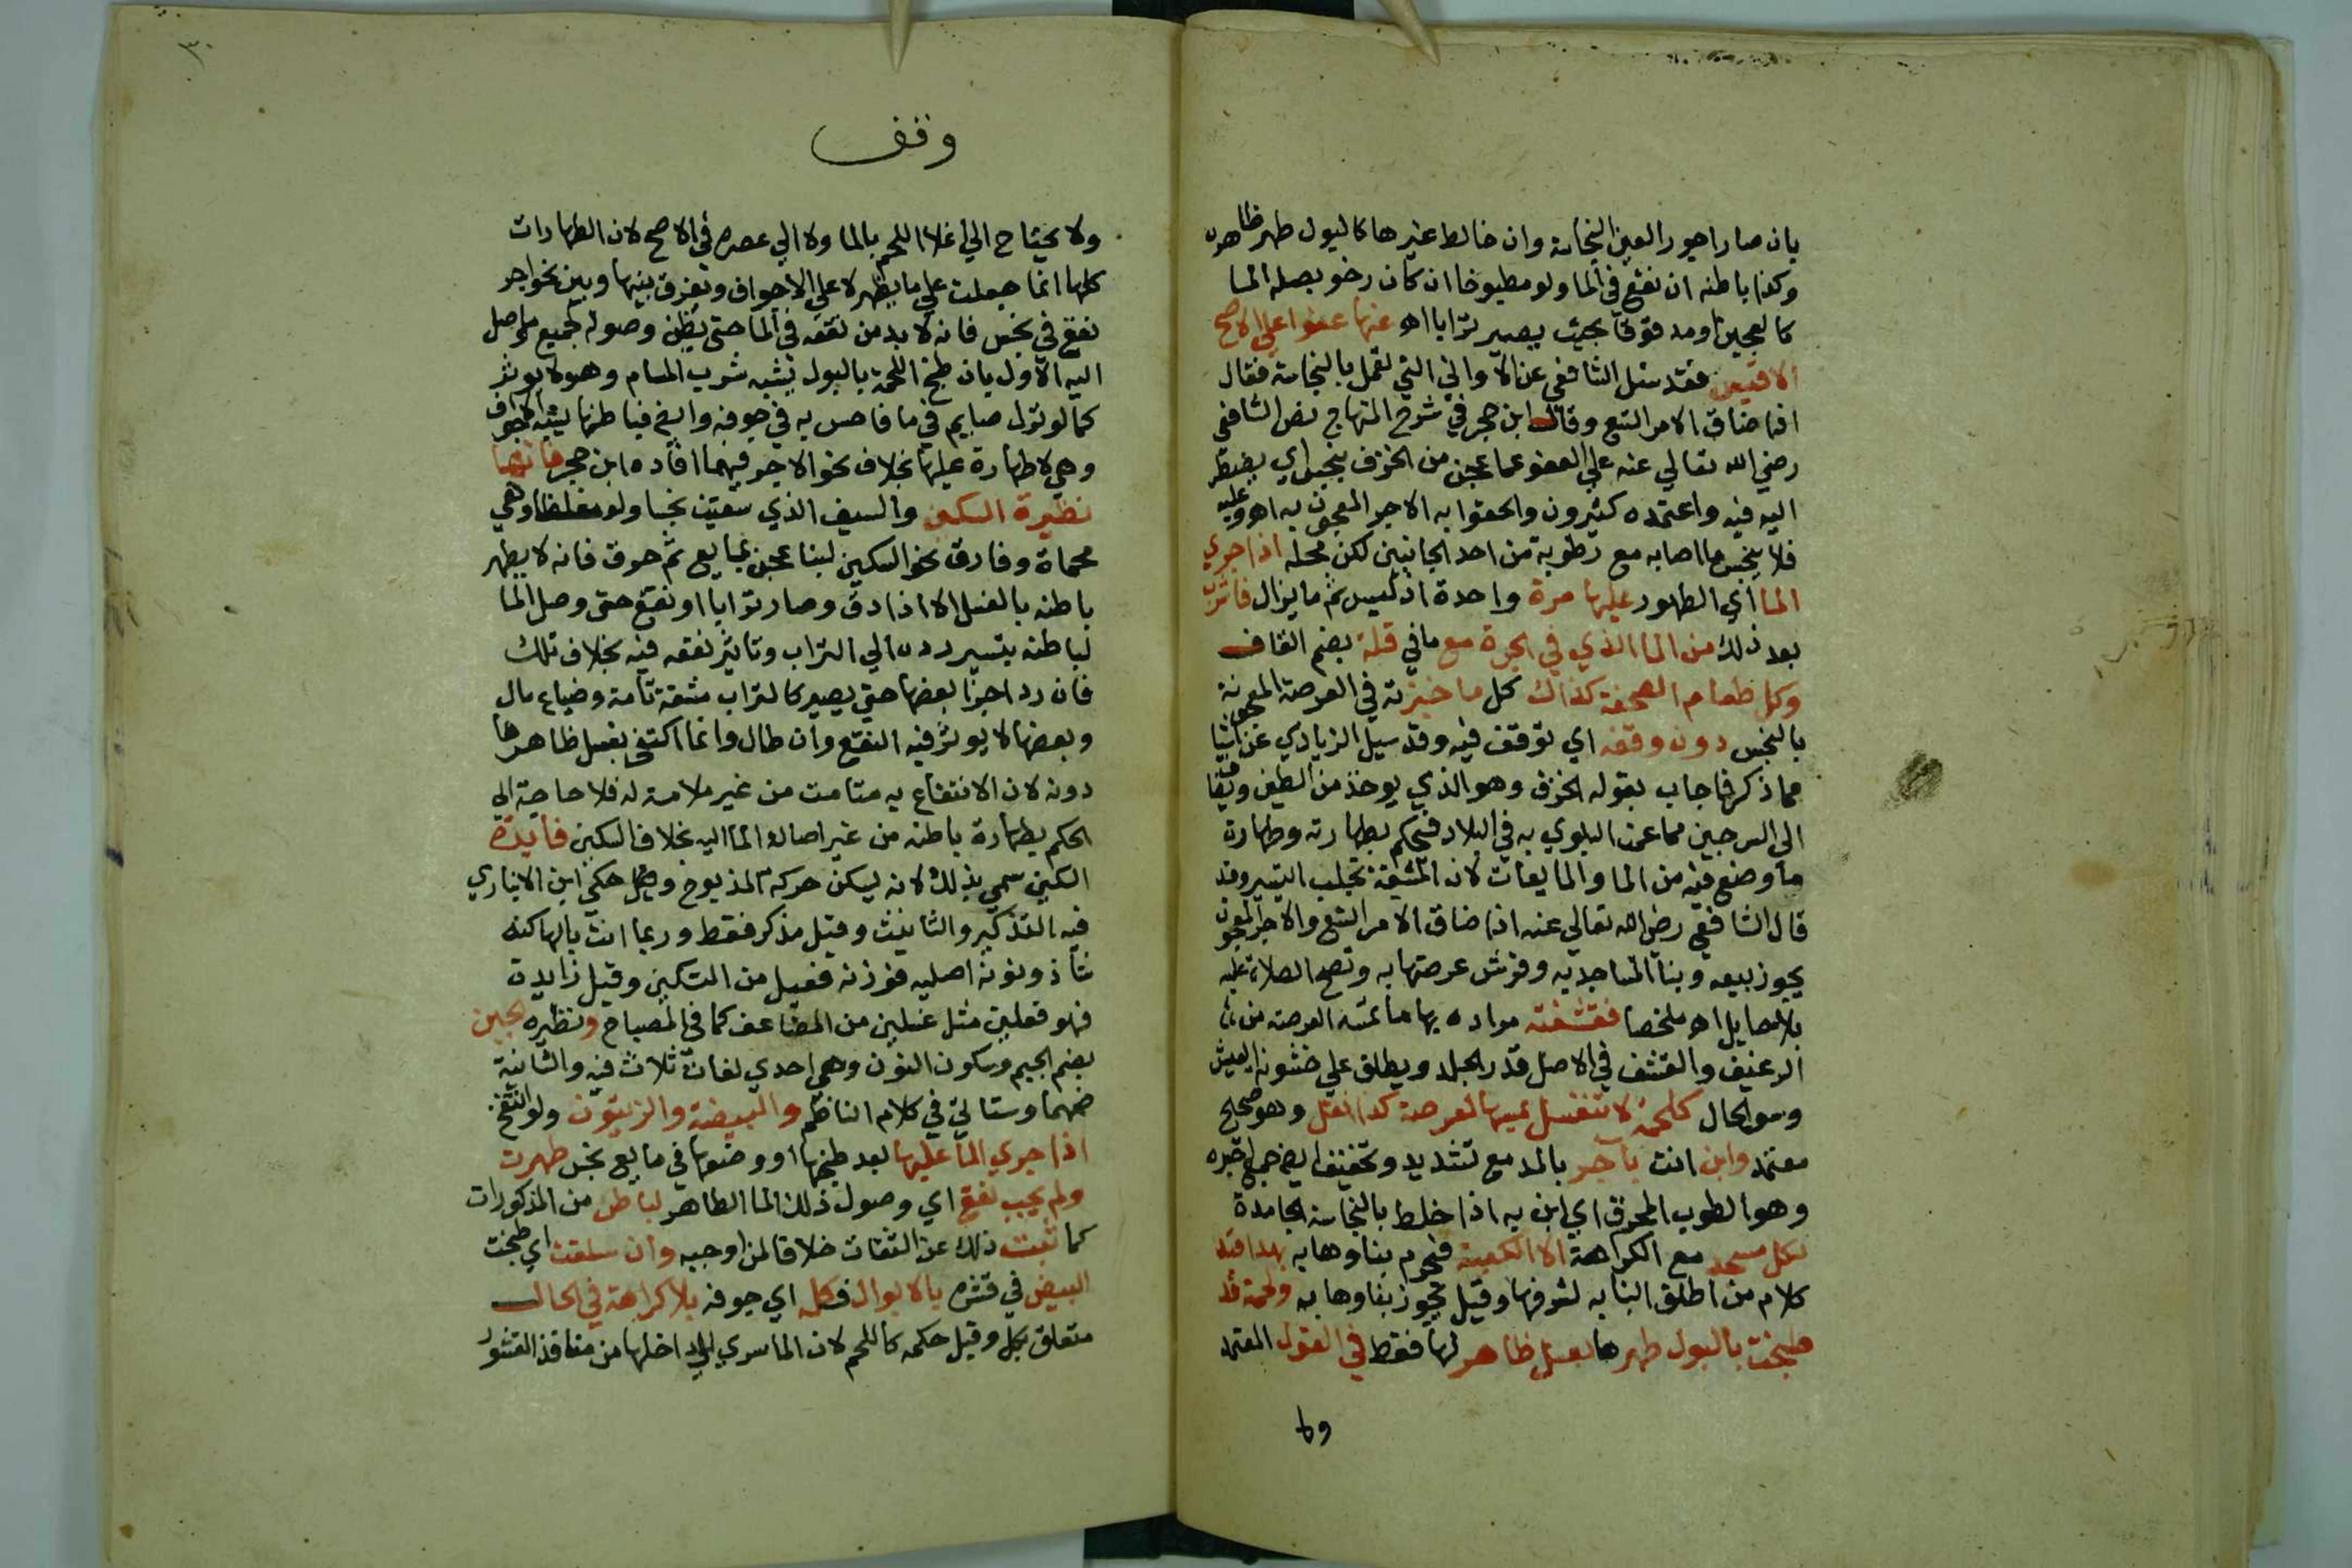 بان صار اجورا لعين النجاسة وان خالط غيرها كالبول طهر ظاهره
وكذا باطنه ان نقع في الما ولو مطبوخا ان كان رخو يصله الما
كالعجين او مدقوقا بحيث يصير ترابا اه عنها عفوا علي الاصح
فقد سئل الشافعي عن الاواني التي تعمل بالنجاسة فقال
اذا ضاق الامر اتسع وقال ابن حجر في شرح المنهاج نص الشافعي
رضي الله تعالي عنه علي العفو عما عجن من الخزف بنجس اي يضطر
اليه فيه واعتمده كثيرون والحقوا به الاجر المعجون به اه وعليه
فلا ينجس ما اصابه مع رطوبة من احد الجانبين لكن محله اذا جري
الما اي الطهور عليها مرة واحدة اذ ليس ثم ما يزال فاشرب
بعد ذلك من الما الذي في الجرة مع ما في قلة بضم القاف
وكل طعام الصحفة كذاك كل ما خبزته في العرصة المعجونة
بالنجس دون وقفه اي توقف فيه وقد سيل الزيادي عن اشيا
مما ذكر فاجاب بقوله الخزف وهو الذي يوخذ من الطين ويضاف
الي السرجين مما عمت البلوي به في البلاد فيحكم بطهارته وطهارة
ما وضع فيه من الما والمايعات لان المشقة تجلب التيسير وقد
قال الشافعي رضي الله تعالي عنه اذا ضاق الامر اتسع والاجر المعجون
يجوز بيعه وبنا المساجد به وفرش عرصتها به وتصح الصلاة عليه
بلا حايل اه ملخصا فقشفته مراده بها ما تمسه العرصة من
الرغيف والقشف في الاصل قذر الجلد ويطلق علي خشونة العيش
وسو الحال كلحمة لا تغسل لعرصة كذا نقل وهو صحيح
معتمد وابن انت بآجر بالمد مع تشديد وتخفيف الراء
وهو الطوب المحرق اي ابن به اذا خلط بالنجاسة الجامدة
لكل مسجد مع الكراهة الا الكعبة فيحرم بناوها به بهذا قيد
كلام من اطلق البنا به لشرفها وقيل يجوز بناوها به ولحمة قد
طبخت بالبول طهرها بغسل ظاهر لها فقط في القول المعتمد
ولا
وقف
٣٠
ولا يحتاج الي اغلا اللحم بالما ولا الي عصره في الاصح لان الطهارات
كلها انما جعلت علي ما يظهر لا علي الاجواف ويفرق بينها وبين نحو اجر
نقع في نجس فانه لا بد من نقعه في الما حتي يظن وصوله لجميع ما وصل
اليه الاول بان طبخ اللحمة بالبول يشبه شرب المسام وهو لا يوثر
كما لو نزل صايم في ما فاحس به في جوفه وايضا فباطنها يشبه الجوف
وهي لا طهارة عليها بخلاف نحو الاجر فيهما افاده ابن حجر فانها
نظيرة السكين والسيف الذي سقيت نجسا ولو مغلظا وهي
محماة وفارق نحو السكين لبنا عجن بمايع ثم حرق فانه لا يطهر
باطنه بالغسل الا اذا دق وصار ترابا او نقع حتي وصل الما
لباطنه بتيسير رده الي التراب وتاثير نقعه فيه بخلاف تلك
فان رد اجزا بعضها حتي يصير كالتراب مشقة تامة وضياع مال
وبعضها لا يوثر فيه النقع وان طال وانما اكتفي بغسل ظاهرها
دونه لان الانتفاع به متات من غير ملامسة له فلا حاجة الي
الحكم بطهارة باطنه من غير ايصال الما اليه بخلاف السكين فايدة
السكين سمي بذلك لانه يسكن حركة المذبوح حكي ابن الانباري
فيه التذكير والتانيث وقيل مذكر فقط وربما انث بالها لكنه
شاذ ونونه اصليه فوزنه فعيل من التسكين وقيل زايدة
فهو فعلين مثل غسلين من المضاعف كما في المصباح ونظيره لجبن
بضم الجيم وسكون النون وهي احدي لغات ثلاث فيه والثانية
ضمهما وستاتي في كلام الناظم والبيضة والزيتون ولو انتفخ
اذا جري الما عليها بعد طبخها او وضعها في مايع نجس طهرت
ولم يجب نقع اي وصول ذلك الما الطاهر لباطن من المذكورات
كما ثبت ذلك عن الثقات خلافا لمن اوجبه وان سلقت اي طبخت
البيض في قشره بالابوال فكله اي جوفه بلا كراهة في الحال
متعلق بكل وقيل حكمه كاللحم لان الما سري الي داخلها من منافذ القشور